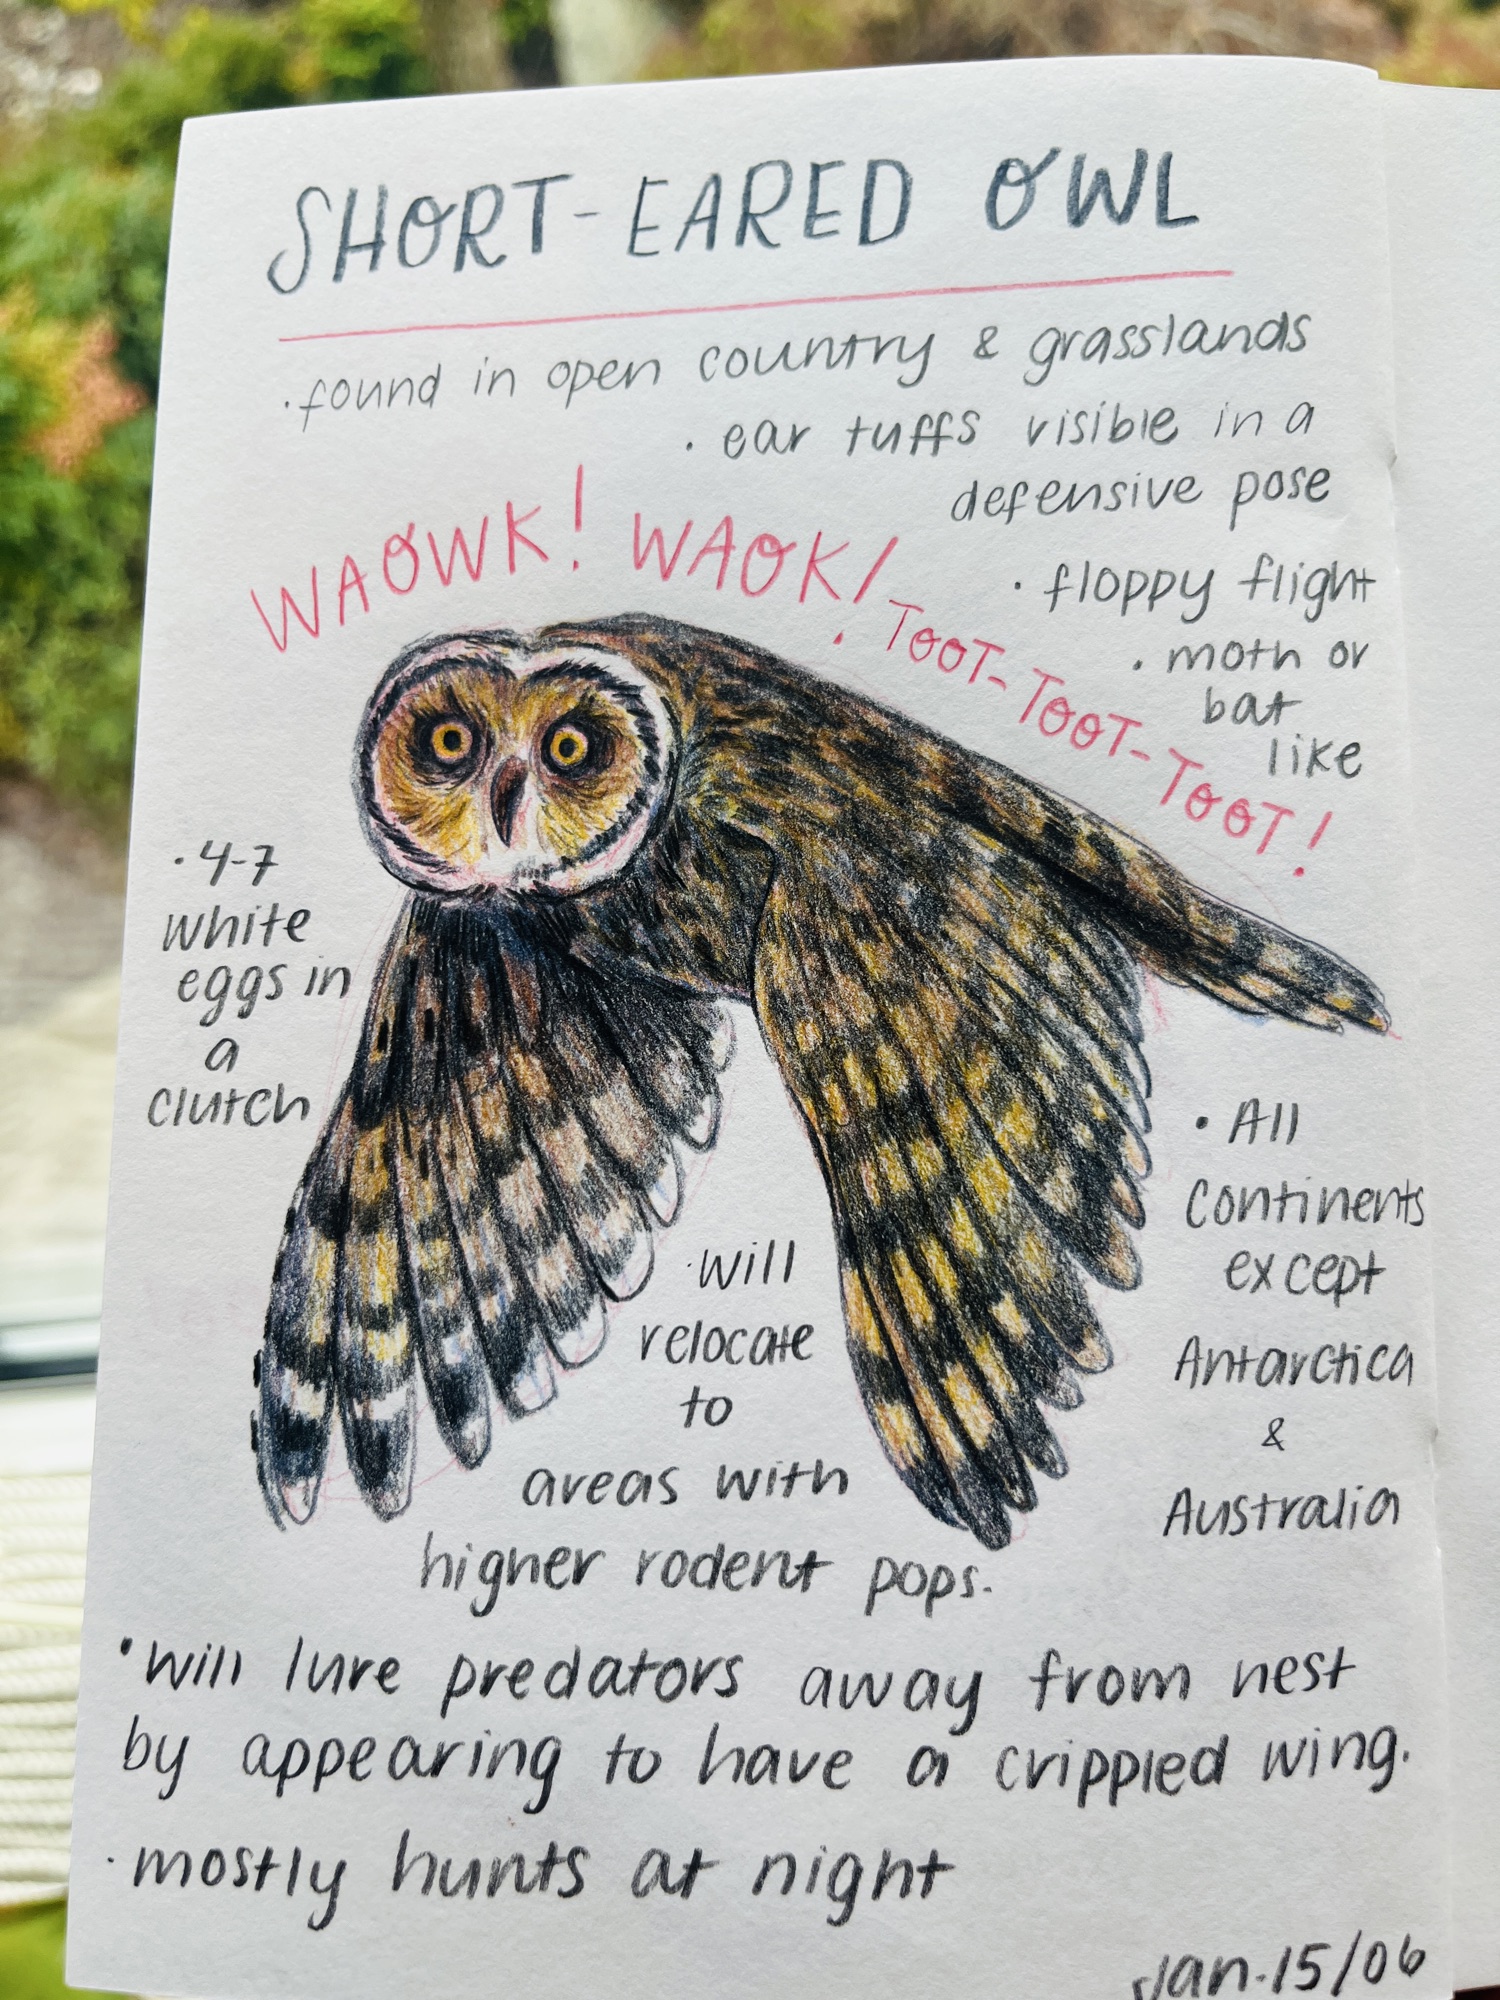 SHORT-EARED OWL
·found in open country & grasslands
· ear tuffs visible in a
defensive pose
WAOWK! WAOK!
TOOT-TOOT-TOOT!
· floppy flight
· moth or
bat
like
· 4-7
white
eggs in
a
clutch
· All
Continents
except
Antarctica
&
Australia
·will
relocate
to
areas with
higher rodent pops.
·will lure predators away from nest
by appearing to have a crippled wing.
·mostly hunts at night
Jan.15/06